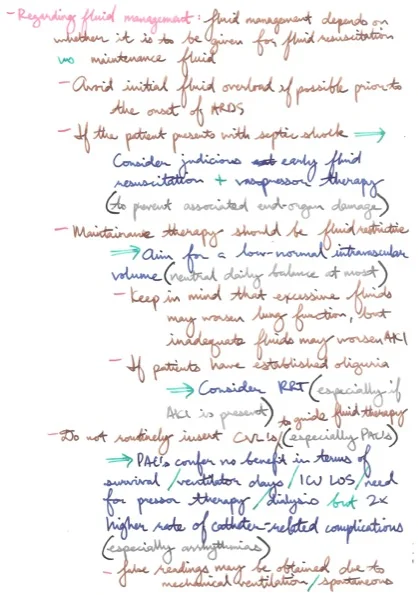 - Regarding fluid management: fluid management depends on
whether it is to be given for fluid resuscitation
vs maintenance fluid
- Avoid initial fluid overload if possible prior to
the onset of ARDS
- If the patient presents with septic shock ⇒
Consider judicious early fluid
resuscitation + vasopressor therapy
(to prevent associated end-organ damage)
- Maintainance therapy should be fluid restrictive
⇒ Aim for a low-normal intravascular
volume (neutral daily balance at most)
- Keep in mind that excessive fluids
may worsen lung function, but
inadequate fluids may worsen AKI
- If patients have established oliguria
⇒ Consider RRT (especially if
AKI is present)
to guide fluid therapy
- Do not routinely insert CVLs (especially PACs)
⇒ PACs confer no benefit in terms of
survival / ventilator days / ICU LOS / need
for pressor therapy / dialysis but 2x
higher rate of catheter-related complications
(especially arrhythmias)
- false readings may be obtained due to
mechanical ventilation / spontaneous